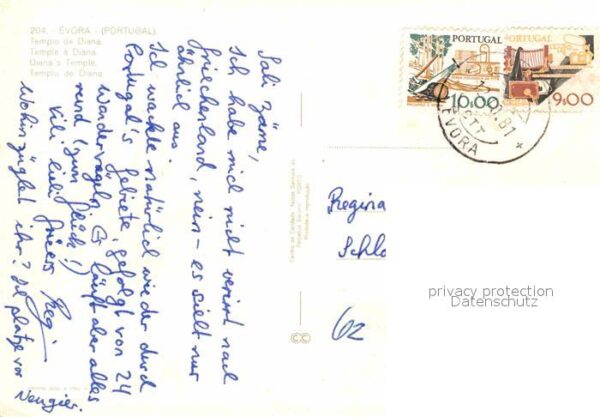 204 - ÉVORA - (PORTUGAL)
Templo de Diana.
Temple à Diana.
Diana's Temple.
Templu de Diana.
Sali zäme,
Ich habe mich nicht verirrt nach
Griechenland, nein - es sieht nur
ähnlich aus.
Ich wachte natürlich wieder durch
Portugal's Gebiete, gefolgt von 24
Wandervögeln. Es läuft aber alles
rund (zum Glück!)
Vili liebi Grüess Reg
Wohin züglet ihr? Ich platze vor
Neugier.
PORTUGAL
10:00
PORTUGAL
9:00
CTT
81
ÉVORA
Regina
Schlo
62
privacy protection
Datenschutz